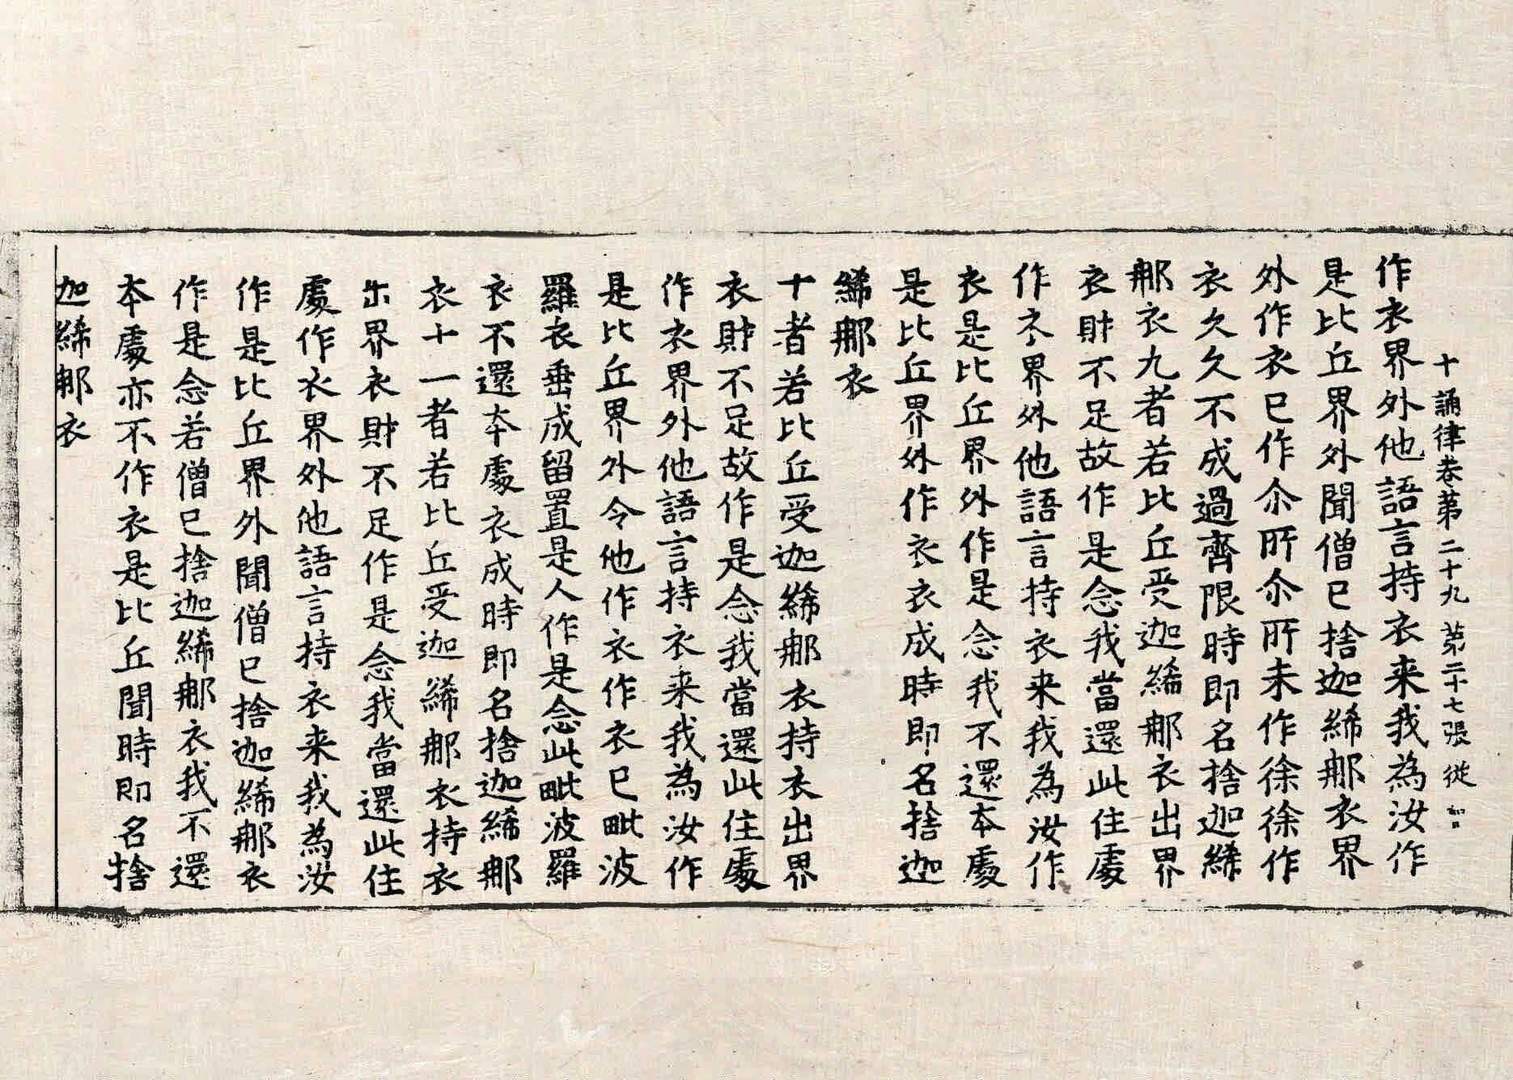 十誦律卷苐二十九　苐二十七張　従
作衣界外他語言持衣来我為汝作
是比丘界外聞僧已捨迦絺那衣界
外作衣已作尒所尒所未作徐徐作
衣久久不成過齊限時即名捨迦絺
那衣九者若比丘受迦絺那衣出界
衣財不足故作是念我當還此住處
作衣界外他語言持衣来我為汝作
衣是比丘界外作是念我不還本處
是比丘界外作衣衣成時即名捨迦
絺那衣
十者若比丘受迦絺那衣持衣出界
衣財不足故作是念我當還此住處
作衣界外他語言持衣来我為汝作
是比丘界外令他作衣作衣已毗波
羅衣垂成留置是人作是念此毗波羅
衣不還本處衣成時即名捨迦絺那
衣十一者若比丘受迦絺那衣持衣
出界衣財不足作是念我當還此住
處作衣界外他語言持衣来我為汝
作是比丘界外聞僧已捨迦絺那衣
作是念若僧已捨迦絺那衣我不還
本處亦不作衣是比丘聞時即名捨
迦絺那衣